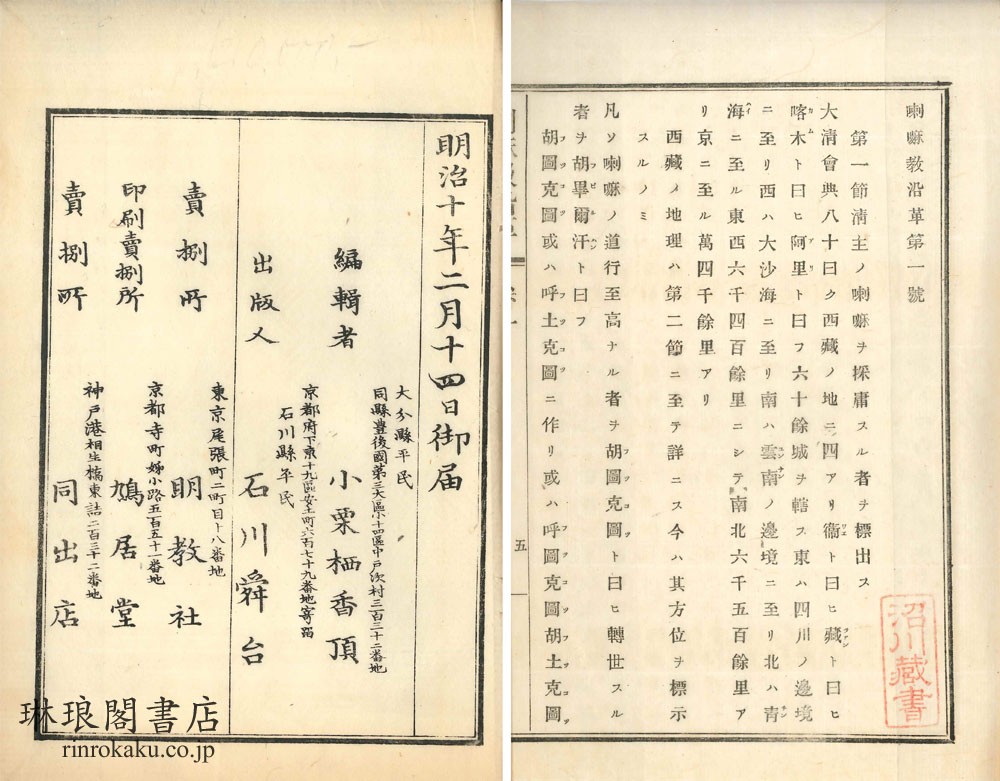 喇嘛教沿革第一號
第一節清主ノ喇嘛ヲ採用スル者ヲ標出ス
大清會典八十曰ク西藏ノ地ニ四アリ衞ト曰ヒ藏ト曰ヒ
喀木ト曰ヒ阿里ト曰フ六十餘城ヲ轄ス東ハ四川ノ邊境
ニ至リ西ハ大沙海ニ至リ南ハ雲南ノ邊境ニ至リ北ハ靑
海ニ至ル東西六千四百餘里ニシテ南北六千五百餘里ア
リ京ニ至ル萬四千餘里アリ
西藏ノ地理ハ第二節ニ至テ詳ニス今ハ其方位ヲ標示
スルノミ
凡ソ喇嘛ノ道行至高ナル者ヲ胡圖克圖ト曰ヒ轉世スル
者ヲ胡畢爾汗ト曰フ
胡圖克圖或ハ呼土克圖ニ作リ或ハ呼圖克圖胡土克圖
五
沼川藏書
明治十年二月十四日御届
大分縣平民
同縣豊後國第三大區小十四區中戸次村三百三十二番地
編輯者 小栗栖香頂
京都府下東十九區安土町六百七十九番地寄留
石川縣平民
出版人 石川舜台
東京尾張町二町目十八番地
賣捌所 明教社
京都寺町姉小路五百五十一番地
印刷賣捌所 鳩居堂
神戸港相生橋東詰二百三十二番地
賣捌所 同出店
琳琅閣書店
rinrokaku.co.jp